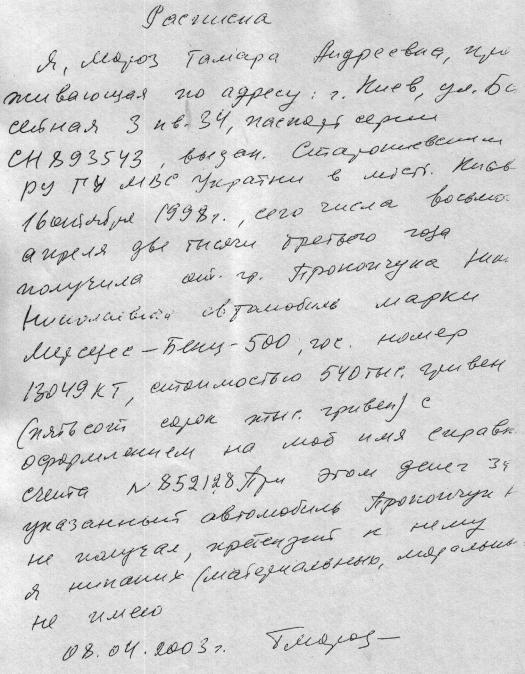 Расписка
Я, Мороз Тамара Андреевна, про
живающая по адресу: г. Киев, ул. Ба
сейная 3 кв. 34, паспорт серии
СН 893543, выдан. Старокиевским
РУ ГУ МВС України в місті. Києв
16 октября 1998г., сего числа восьмо
апреля две тысячи третьего года
получила от гр. Прокопчука Ник
Николаевича автомобиль марки
Мерседес – Бенц – 500, гос. номер
13049 КТ, стоимостью 540 тыс. гривен
(пятьсот сорок тыс. гривен) с
оформлением на моё имя справк
счета N 852128. При этом денег за
указанный автомобиль Прокопчук Н
не получал, претензий к нему
я никаких (материальных, моральны
не имею
08.04.2003г. ТМороз